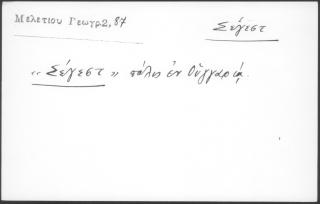 Μελετίου Γεωγρ2,87
Σέγεστ
«Σέγεστ» πόλις ἐν Οὑγγαρίᾳ.